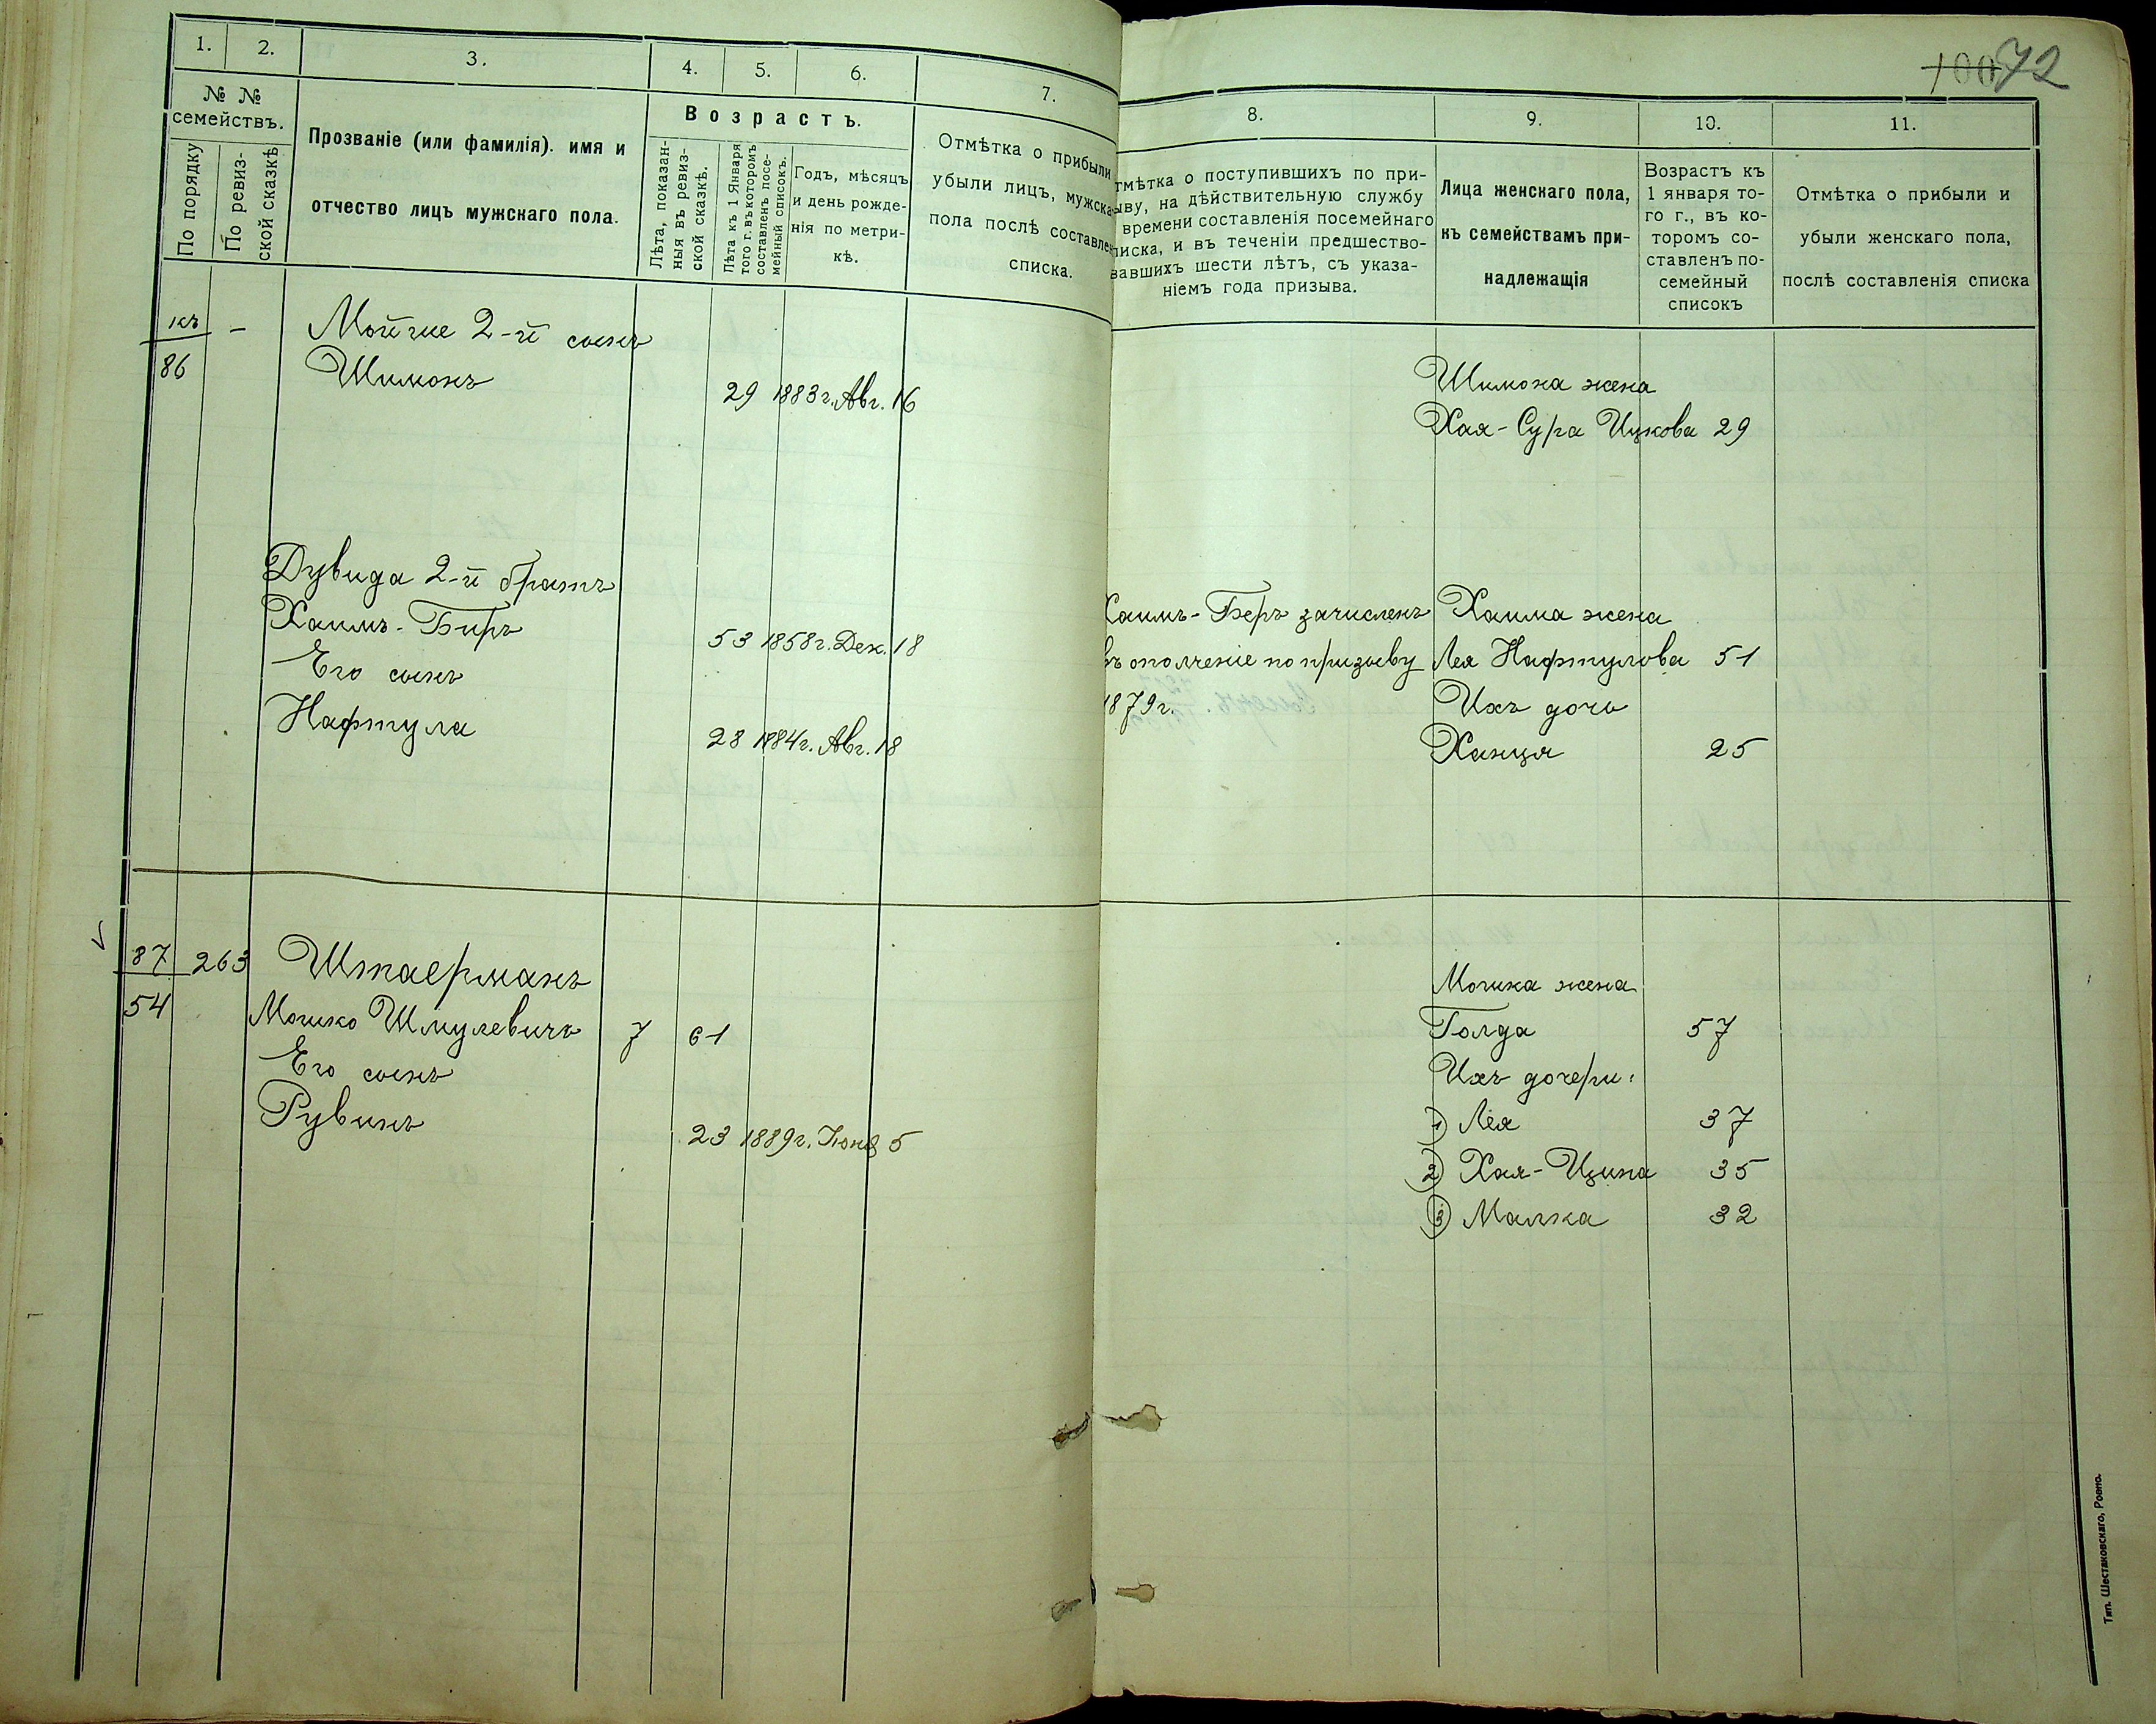 100 72
1. 2. 3. 4. 5. 6. 7.
№ № семействъ.
По порядку
По ревиз-
ской сказкѣ
Прозваніе (или фамилія). имя и
отчество лицъ мужскаго пола.
Возрастъ.
Лѣта, показан-
ныя въ ревиз-
ской сказкѣ.
Лѣта къ 1 Января
того г. въ которомъ
составленъ посе-
мейный списокъ.
Годъ, мѣсяцъ
и день рожде-
нія по метри-
кѣ.
Отмѣтка о прибыли
убыли лицъ, мужска
пола послѣ составлен
списка.
къ
86 –
Мойше 2-й сынъ
Шимонъ 29 1883г. Авг. 16
Дувида 2-й братъ
Хаимъ-Биръ 53 1858г. Дек. 18
Его сынъ
Нафтула 28 1884г. Авг. 18
87 263 Штаерманъ
54 Мошко Шмулевичъ 7 61
Его сынъ
Рувинъ 23 1889г. Іюня 5
8. 9. 10. 11.
тмѣтка о поступившихъ по при-
ыву, на дѣйствительную службу
времени составленія посемейнаго
писка, и въ теченіи предшество-
вавшихъ шести лѣтъ, съ указа-
ніемъ года призыва.
Лица женскаго пола,
къ семействамъ при-
надлежащія
Возрастъ къ
1 января то-
го г., въ ко-
торомъ со-
ставленъ по-
семейный
списокъ
Отмѣтка о прибыли и
убыли женскаго пола,
послѣ составленія списка
Шимона жена
Хая-Сура Ицкова 29
Хаимъ-Беръ зачисленъ
въ ополченіе по призыву
1879г.
Хаима жена
Лея Нафтулова 51
Ихъ дочь
Ханця 25
Мошка жена
Голда 57
Ихъ дочери:
1) Лея 37
2) Хая-Ципа 35
3) Малка 32
Тип. Шестаковскаго, Ровно.